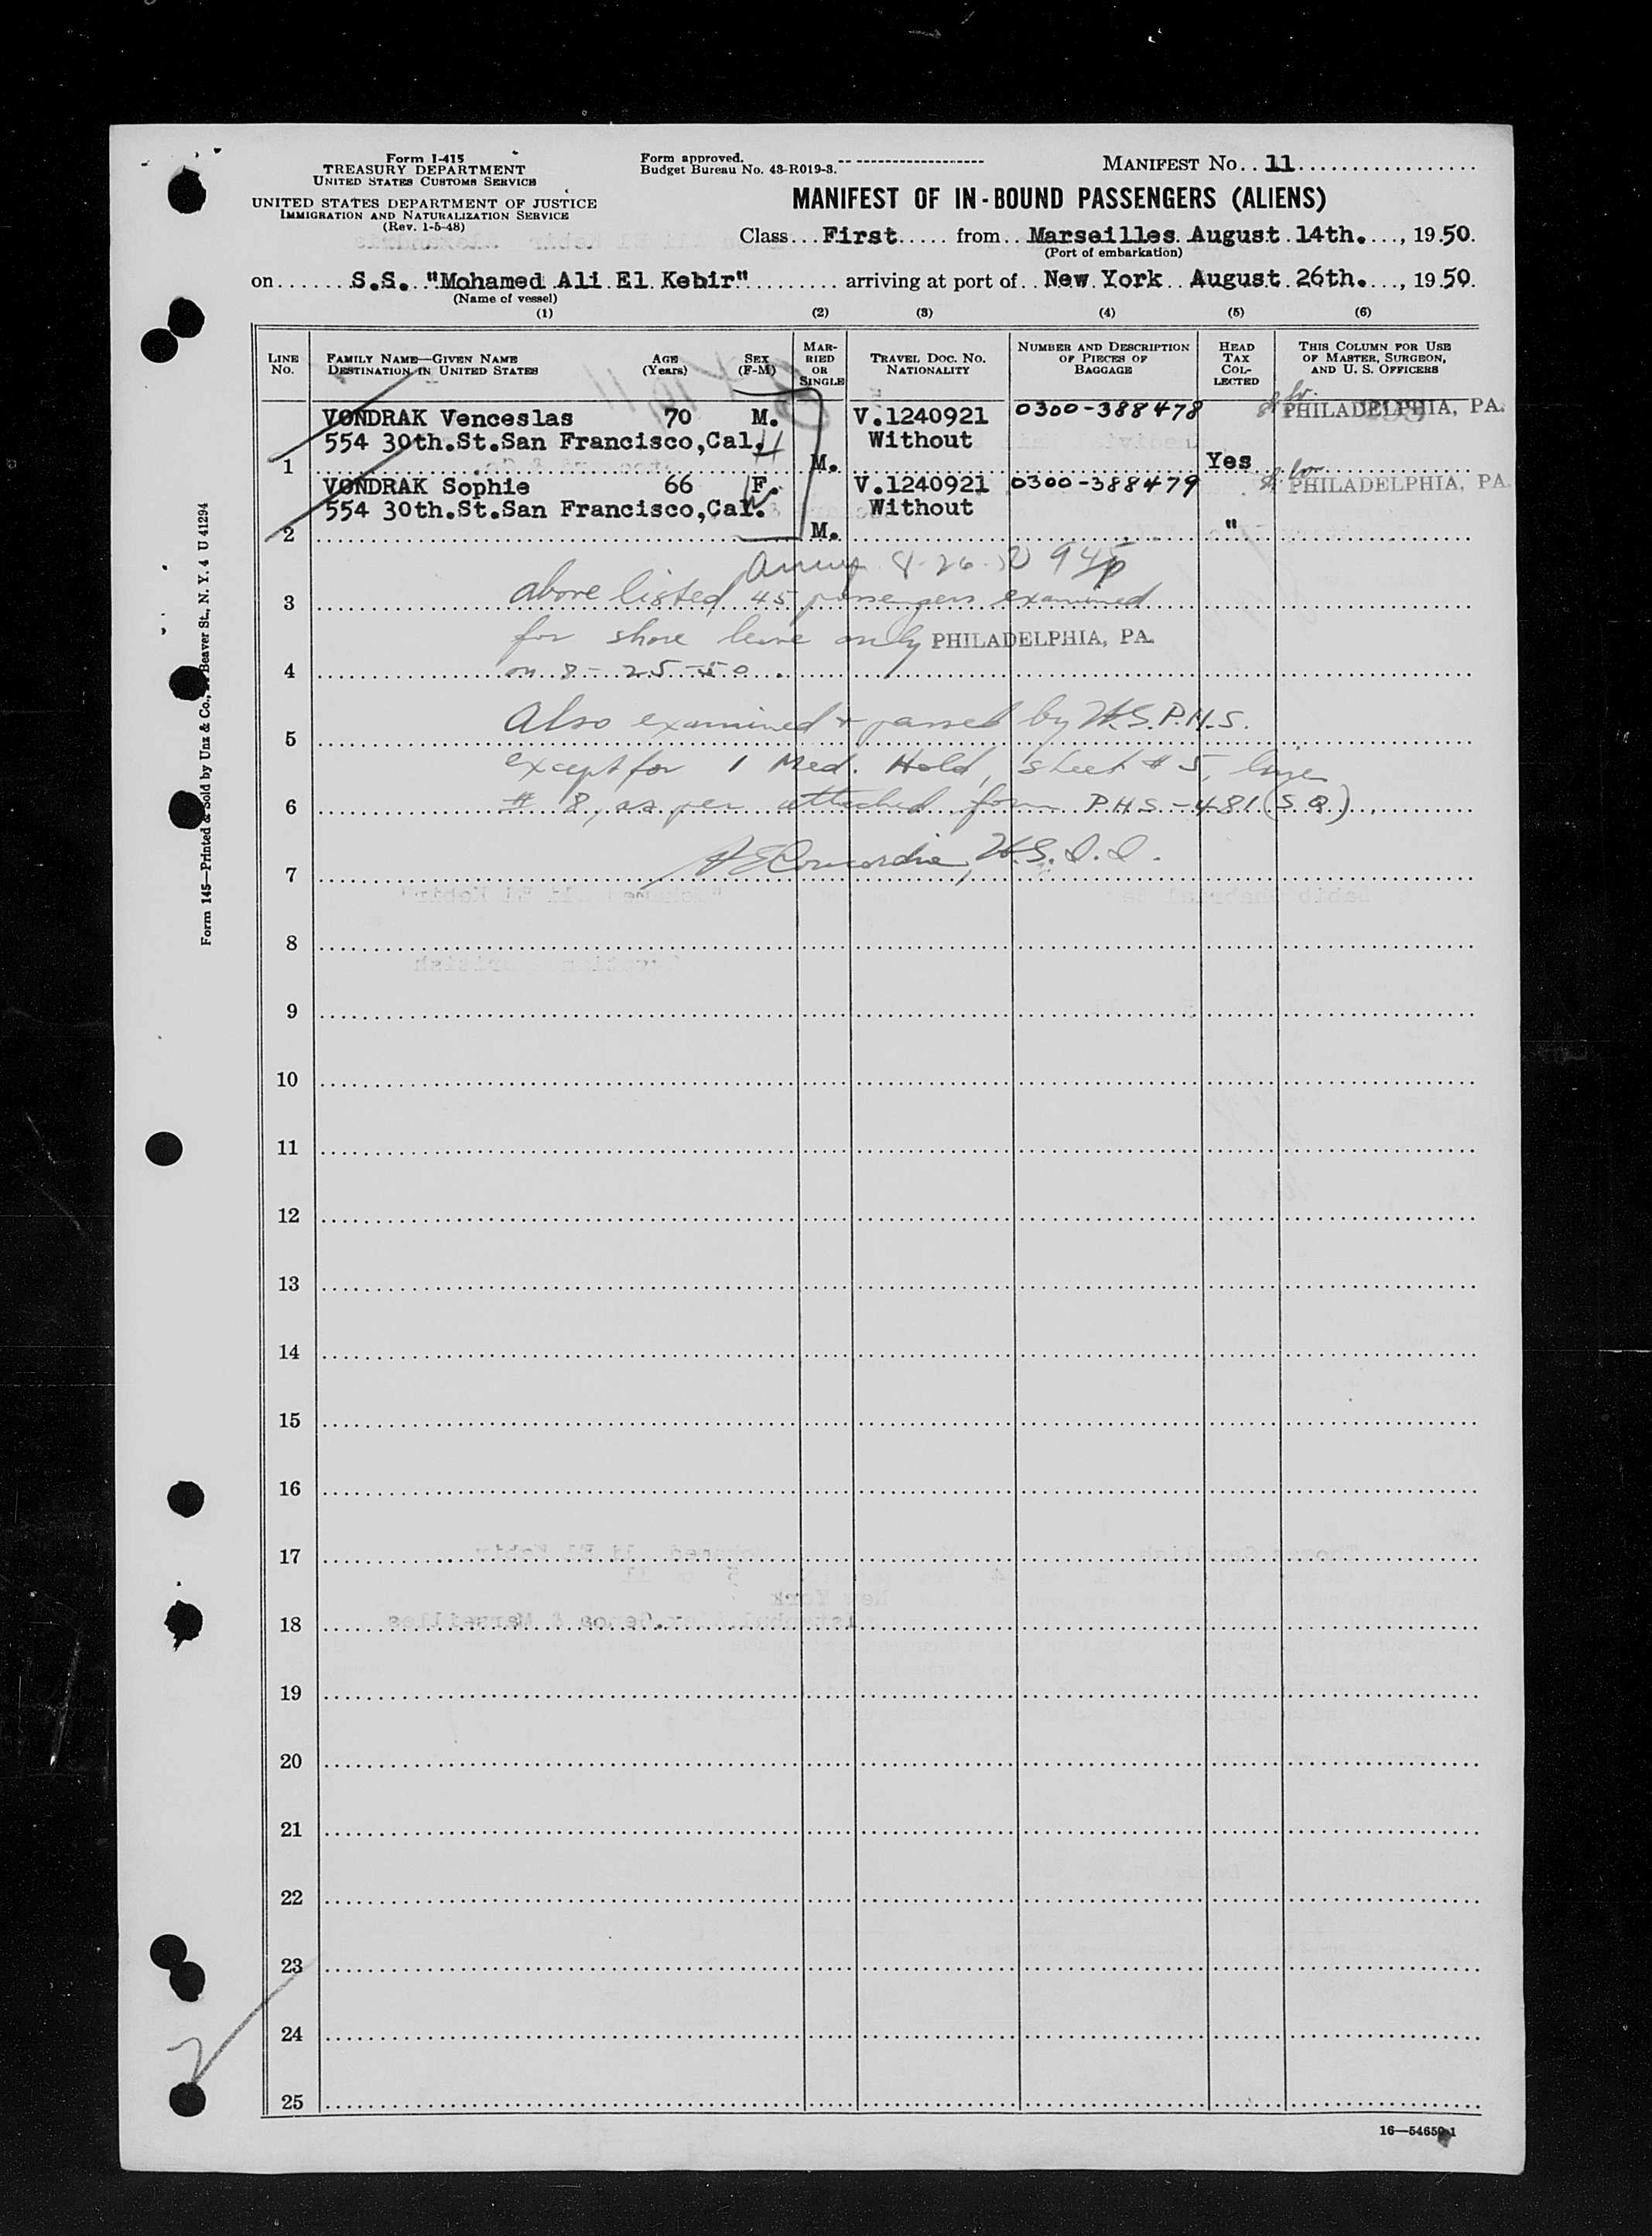 Form I-415
TREASURY DEPARTMENT
UNITED STATES CUSTOMS SERVICE
UNITED STATES DEPARTMENT OF JUSTICE
IMMIGRATION AND NATURALIZATION SERVICE
(Rev. 1-5-48)
Form approved.
Budget Bureau No. 43-R019-3.
MANIFEST NO. 11
MANIFEST OF IN-BOUND PASSENGERS (ALIENS)
Class First from Marseilles August 14th., 1950.
(Port of embarkation)
on S.S. "Mohamed Ali El Kebir" arriving at port of New York August 26th., 1950.
(Name of vessel)
(1) (2) (3) (4) (5) (6)
LINE NO.
FAMILY NAME—GIVEN NAME
DESTINATION IN UNITED STATES
AGE (Years)
SEX (F-M)
MARRIED OR SINGLE
TRAVEL DOC. NO.
NATIONALITY
NUMBER AND DESCRIPTION OF PIECES OF BAGGAGE
HEAD TAX COLLECTED
THIS COLUMN FOR USE OF MASTER, SURGEON, AND U. S. OFFICERS
VONDRAK Venceslas 70 M. V.1240921 0300-388478 PHILADELPHIA, PA.
554 30th.St.San Francisco,Cal. Without
1 M. Yes
VONDRAK Sophie 66 F. V.1240921 0300-388479 PHILADELPHIA, PA
554 30th.St.San Francisco,Cal. Without
2 M. "
8-26-50 945p
3 above listed 45 passengers examined
for shore leave only PHILADELPHIA, PA.
4 on 8-25-50.
Also examined + passed by U.S.P.H.S.
5
except for 1 Med. Hold, sheet #5, line
6 #8, as per attached form P.H.S.-481 (S.Q.).
U.S.I.I.
7
8
9
10
11
12
13
14
15
16
17
18
19
20
21
22
23
24
25
2
16—54659-1
Form 145—Printed & Sold by Unz & Co., Beaver St., N. Y. 4 U 41294